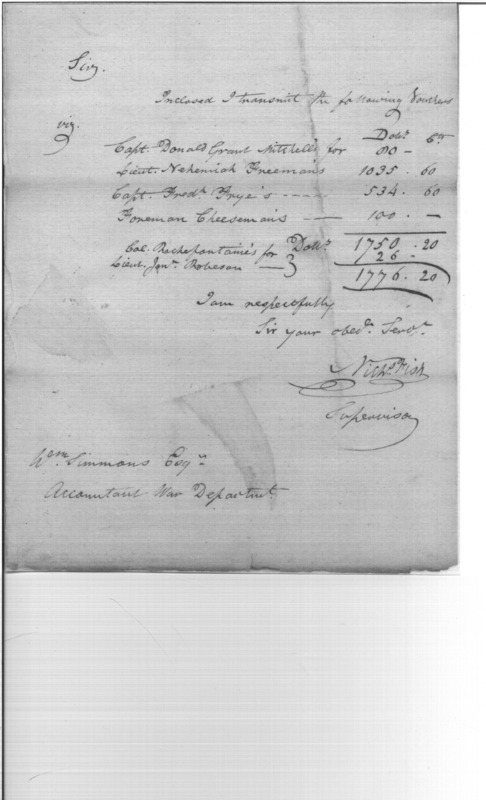 Sir,
Inclosed I transmit the following Vouchers
viz.
Dolrs Cts
Capt. Donald Grant Mitchell's for 80 -
Lieut. Nehemiah Freeman's 1035. 60
Capt. Fredk. Frye's ---- 534. 60
Foreman Cheeseman's — 100. -
Dolls 1750. 20
Col. Rochefontaine's for 26 -
Lieut. Jonn. Robeson —
1776. 20
I am respectfully
Sir your obedt. Servt.
Nichs Fish
Supervisor
Wm Simmons Esqr
Accountant War Departmt.